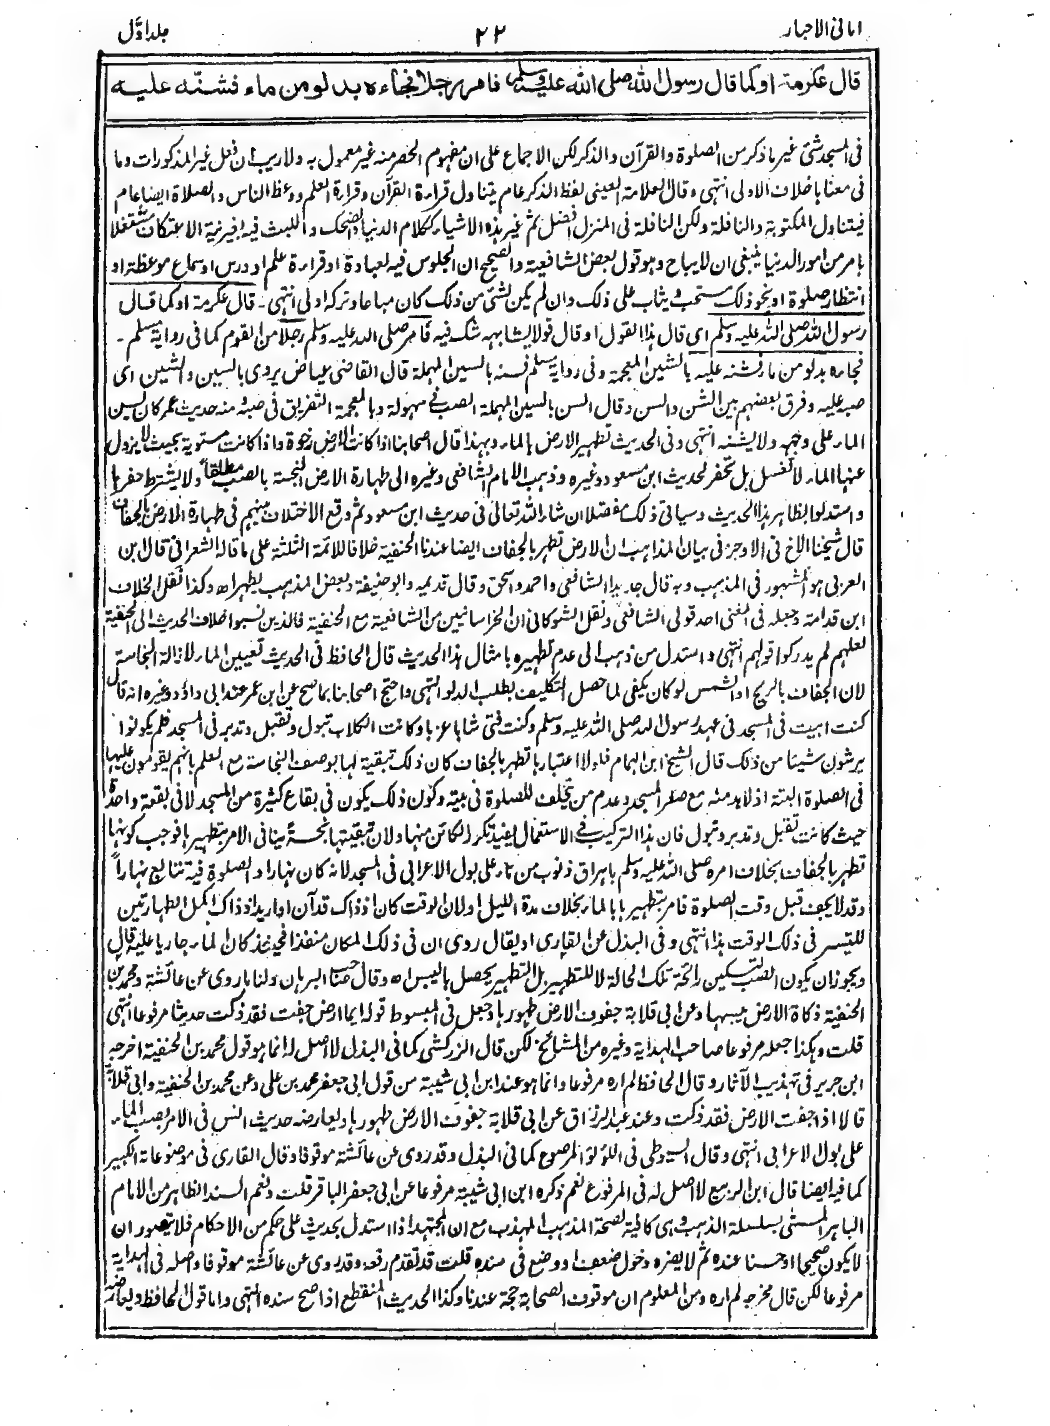 امانی الاحبار ۲۲ جلد اوّل
قال عكرمة او كما قال رسول الله صلى الله عليه وسلم فامر رجلا فجاءه بدلو من ماء فشنّه عليه
فی المسجد شئ غیر ما ذکر من الصلوة والقرآن والذکر لکن الاجماع علی ان مفهوم الحصر منه غیر معمول به ولا ریب ان فعل غیر المذکورات وما
فی معناہا خلاف الاولی انتهی، وقال العلامة العینی لفظ الذکر عام یتناول قراءة القرآن وقراءة العلم ووعظ الناس والصلاة ایضا عام
فیتناول المکتوبة والنافلة ولکن النافلة فی المنزل افضل ثم غیر هذه الاشیاء ککلام الدنیا والضحک واللبث فیه بغیر نیة الاعتکاف مشتغلا
بامر من امور الدنیا ینبغی ان لا یباح وهو قول بعض الشافعیة والصحیح ان الجلوس فیه لعبادة او قراءة علم او درس او سماع موعظة او
انتظار صلوة او نحو ذلک مستحب ویثاب علی ذلک وان لم یکن لشئ من ذلک کان مباحا وترکه اولی انتهی۔ قال عکرمة او کما قال
رسول الله صلی الله علیه وسلم ای قال هذا القول او قال قولا یشابهه شک فیه فامر صلی الله علیه وسلم رجلا من القوم کما فی روایة مسلم۔
فجاءه بدلو من ماء فشنه علیه بالشین المعجمة وفی روایة مسلم فسنه بالسین المهملة قال القاضی عیاض یروی بالسین والشین ای
صبه علیه وفرق بعضهم بین الشن والسن وقال السن بالسین المهملة الصب فی سهولة وبالمعجمة التفریق فی صبه ومنه حدیث عمر کان یسن
الماء علی وجهه ولا یشنه انتهی وفی الحدیث تطهیر الارض بالماء وبهذا قال اصحابنا اذا کانت الارض رخوة واذا کانت مستویة بحیث لا یزول
عنها الماء لا تغسل بل تحفر لحدیث ابن مسعود وغیره وذهب الامام الشافعی وغیره الی طهارة الارض النجسة بالصب مطلقاً ولا یشترط حفرها
واستدلوا بظاهر هذا الحدیث وسیاتی ذلک مفصلا ان شاء الله تعالی فی حدیث ابن مسعود ثم وقع الاختلاف بینهم فی طهارة الارض بالجفاف
قال شیخنا الاخ فی الاوجز فی بیان المذاهب ان الارض تطهر بالجفاف ایضا عندنا الحنفیة خلافا للائمة الثلثة علی ما قاله الشعرانی قال ابن
العربی هو المشهور فی المذهب وبه قال جدید الشافعی واحمد واسحق وقال قدیمه وابو حنیفة وبعض المذهب یطهر اھ وکذا نقل الخلاف
ابن قدامة وجعله فی المغنی احد قولی الشافعی ونقل الشوکانی ان الخراسانیین من الشافعیة مع الحنفیة فالذین نسبوا خلاف الحدیث الی الحنفیة
لعلهم لم یدرکوا قولهم انتهی واستدل من ذهب الی عدم تطهیره بامثال هذا الحدیث قال الحافظ فی الحدیث تعیین الماء لازالة النجاسة
لان الجفاف بالریح او الشمس لو کان یکفی لما حصل التکلیف بطلب الدلو انتهی واحتج اصحابنا بما صح عن ابن عمر عند ابی داؤد وغیره انه قال
کنت ابیت فی المسجد فی عهد رسول الله صلی الله علیه وسلم وکنت فتی شابا عزبا وکانت الکلاب تبول وتقبل وتدبر فی المسجد فلم یکونوا
یرشون شیئا من ذلک قال الشیخ ابن الهمام فلولا اعتبارها تطهر بالجفاف کان ذلک تبقیة لها بوصف النجاسة مع العلم بانهم یقومون علیها
فی الصلوة البتة اذ لا بد منه مع صغر المسجد وعدم من یتخلف للصلوة فی بیته وکون ذلک یکون فی بقاع کثیرة من المسجد لا فی بقعة واحدة
حیث کانت تقبل وتدبر وتبول فان هذا الترکیب فی الاستعمال یفید تکرر الکائن منها ولان تبقیتها نجسة ینافی الامر بتطهیرها فوجب کونها
تطهر بالجفاف بخلاف امره صلی الله علیه وسلم باهراق ذنوب من ماء علی بول الاعرابی فی المسجد لانه کان نهارا والصلوة فیه تتابع نهاراً
وقد لا یجف قبل وقت الصلوة فامر بتطهیرها بالماء بخلاف مدة اللیل او لان الوقت کان اذ ذاک قد آن او ارید اذ ذاک اکمل الطهارتین
للتیسر فی ذلک الوقت هذا انتهی وفی البذل عن القاری او یقال روی ان فی ذلک المکان منفذا فحینئذ کان الماء جاریا علیه قال
ویجوز ان یکون الصب لتسکین رائحة تلک الحالة لا للتطهیر بل التطهیر یحصل بالیبس اھ وقال صاحب البرهان ولنا ما روی عن عائشة ومحمد بن
الحنفیة ذکاة الارض یبسها وعن ابی قلابة جفوف الارض طهورها وجعل فی المبسوط قوله ایما ارض جفت فقد ذکت حدیثا مرفوعا انتهی
قلت وهکذا جعله مرفوعا صاحب الهدایة وغیره من المشائخ لکن قال الزرکشی کما فی البذل لا اصل له انما هو قول محمد بن الحنفیة اخرجه
ابن جریر فی تهذیب الآثار وقال الحافظ لم اره مرفوعا وانما هو عند ابن ابی شیبة من قول ابی جعفر محمد بن علی وعن محمد بن الحنفیة وابی قلابة
قالا اذا جفت الارض فقد ذکت وعند عبد الرزاق عن ابی قلابة جفوف الارض طهورها ویعارضه حدیث انس فی الامر بصب الماء
علی بول الاعرابی انتهی وقال السیوطی فی اللؤلؤ المرصوع کما فی البذل وقد روی عن عائشة موقوفا وقال القاری فی موضوعاته الکبیر
کما فیه ایضا قال ابن الربیع لا اصل له فی المرفوع نعم ذکره ابن ابی شیبة مرفوعا عن ابی جعفر الباقر قلت ونعم السند الظاهر من الامام
الباهر المسمی بسلسلة الذهب وهی کافیة لصحة المذهب المهذب مع ان المجتهد اذا استدل بحدیث علی حکم من الاحکام فلا یتصور ان
لا یکون صحیحا او حسنا عنده ثم لا یضره دخول ضعف او وضع فی سنده قلت قد تقدم رفعه وقد روی عن عائشة موقوفا واصله فی الهدایة
مرفوعا لکن قال مخرجه لم اره ومن المعلوم ان موقوف الصحابة حجة عندنا وکذا الحدیث المنقطع اذا صح سنده انتهی واما قول الحافظ ویعارضه